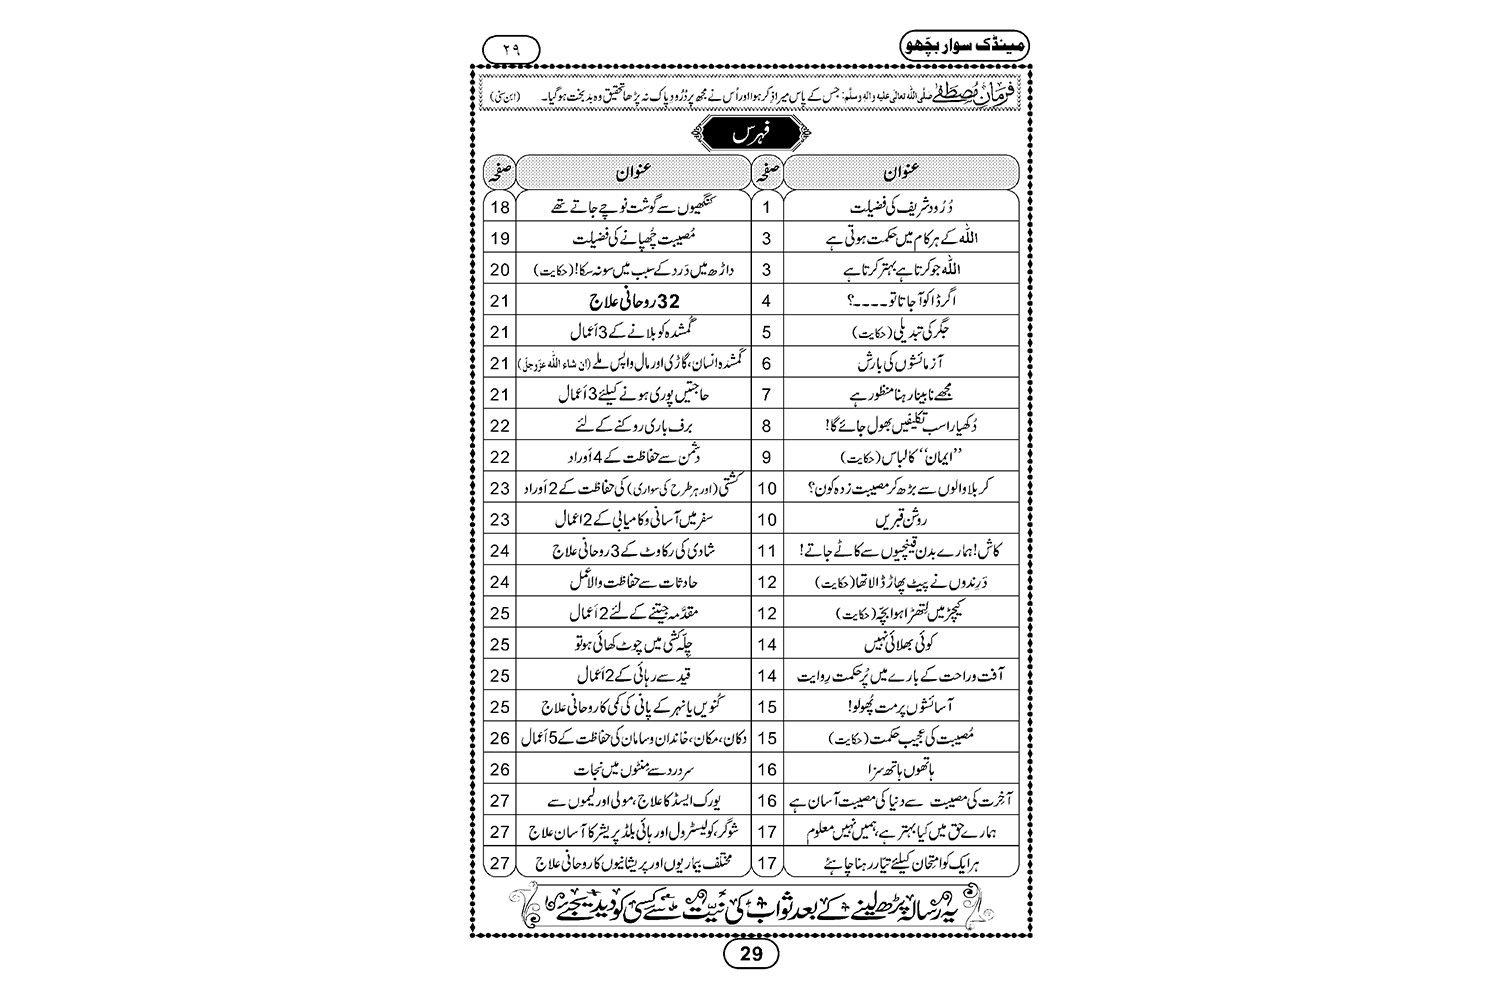 مینڈک سوار بچّھو
۲۹
فرمانِ مُصطَفٰے صلی اللہ تعالٰی علیہ واٰلہٖ وسلّم: جس کے پاس میرا ذِکر ہوا اور اُس نے مجھ پر دُرُود پاک نہ پڑھا تحقیق وہ بد بخت ہوگیا۔ (ابن سنی)
فہرس
عنوان صفحہ عنوان صفحہ
دُرُود شریف کی فضیلت 1 کنگھیوں سے گوشت نوچے جاتے تھے 18
اللہ کے ہر کام میں حکمت ہوتی ہے 3 مُصیبت چُھپانے کی فضیلت 19
اللہ جو کرتا ہے بہتر کرتا ہے 3 داڑھ میں دَرد کے سبب میں سو نہ سکا! (حکایت) 20
اگر ڈاکو آجاتا تو۔۔۔۔؟ 4 32 روحانی علاج 21
جگر کی تبدیلی (حکایت) 5 گُمشدہ کو بلانے کے 3 اَعمال 21
آزمائشوں کی بارش 6 گُمشدہ انسان، گاڑی اور مال واپس ملے (ان شاء اللہ عزّوجلّ) 21
مجھے نابینا رہنا منظور ہے 7 حاجتیں پوری ہونے کیلئے 3 اَعمال 21
دُکھیارا سب تکلیفیں بھول جائے گا! 8 برف باری روکنے کے لئے 22
”ایمان“ کا لباس (حکایت) 9 دشمن سے حفاظت کے 4 اَوراد 22
کربلا والوں سے بڑھ کر مصیبت زدہ کون؟ 10 کشتی (اور ہر طرح کی سواری) کی حفاظت کے 2 اَوراد 23
روشن قبریں 10 سفر میں آسانی و کامیابی کے 2 اعمال 23
کاش! ہمارے بدن قینچیوں سے کاٹے جاتے! 11 شادی کی رکاوٹ کے 3 روحانی علاج 24
دَرِندوں نے پیٹ پھاڑ ڈالا تھا (حکایت) 12 حادثات سے حفاظت والا عمل 24
کیچڑ میں لِتھڑا ہوا بچّہ (حکایت) 12 مقدَّمہ جیتنے کے لئے 2 اَعمال 25
کوئی بھلائی نہیں 14 چِلّہ کشی میں چوٹ کھائی ہو تو 25
آفت و راحت کے بارے میں پُر حکمت رِوایت 14 قید سے رہائی کے 2 اَعمال 25
آسائشوں پر مت پُھولو! 15 کُنویں یا نہر کے پانی کی کمی کا روحانی علاج 25
مُصیبت کی عجیب حکمت (حکایت) 15 دکان، مکان، خاندان و سامان کی حفاظت کے 5 اَعمال 26
ہاتھوں ہاتھ سزا 16 سر درد سے مِنٹوں میں نجات 26
آخِرت کی مصیبت سے دنیا کی مصیبت آسان ہے 16 یورک ایسڈ کا علاج، مولی اور لیموں سے 27
ہمارے حق میں کیا بہتر ہے، ہمیں نہیں معلوم 17 شوگر، کولیسٹرول اور ہائی بلڈ پریشر کا آسان علاج 27
ہر ایک کو امتحان کیلئے تیّار رہنا چاہئے 17 مختلف بیماریوں اور پریشانیوں کا روحانی علاج 27
یہ رسالہ پڑھ لینے کے بعد ثواب کی نیّت سے کسی کو دیدیجئے
29